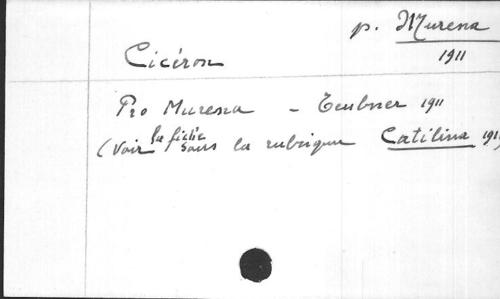 p. Murena
1911
Cicéron
Pro Murena - Teubner 1911
(Voir la fiche sous la rubrique Catilina 1911)